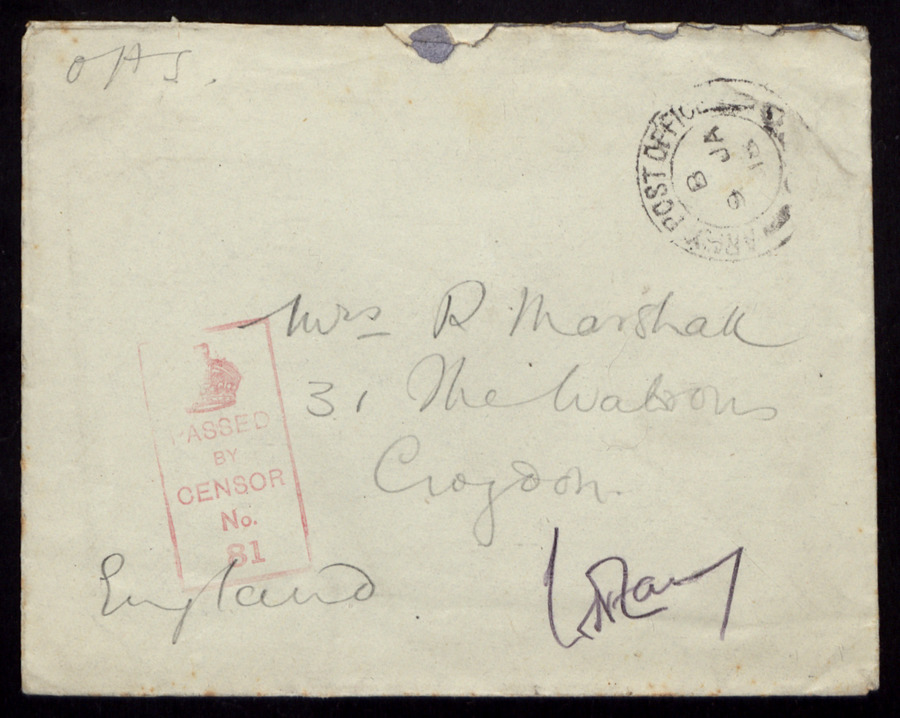 OAS.
ARMY POST OFFICE
B
9 JA
Mrs R Marshall
31 The Waldrons
Croydon.
England
PASSED
BY
CENSOR
No.
81